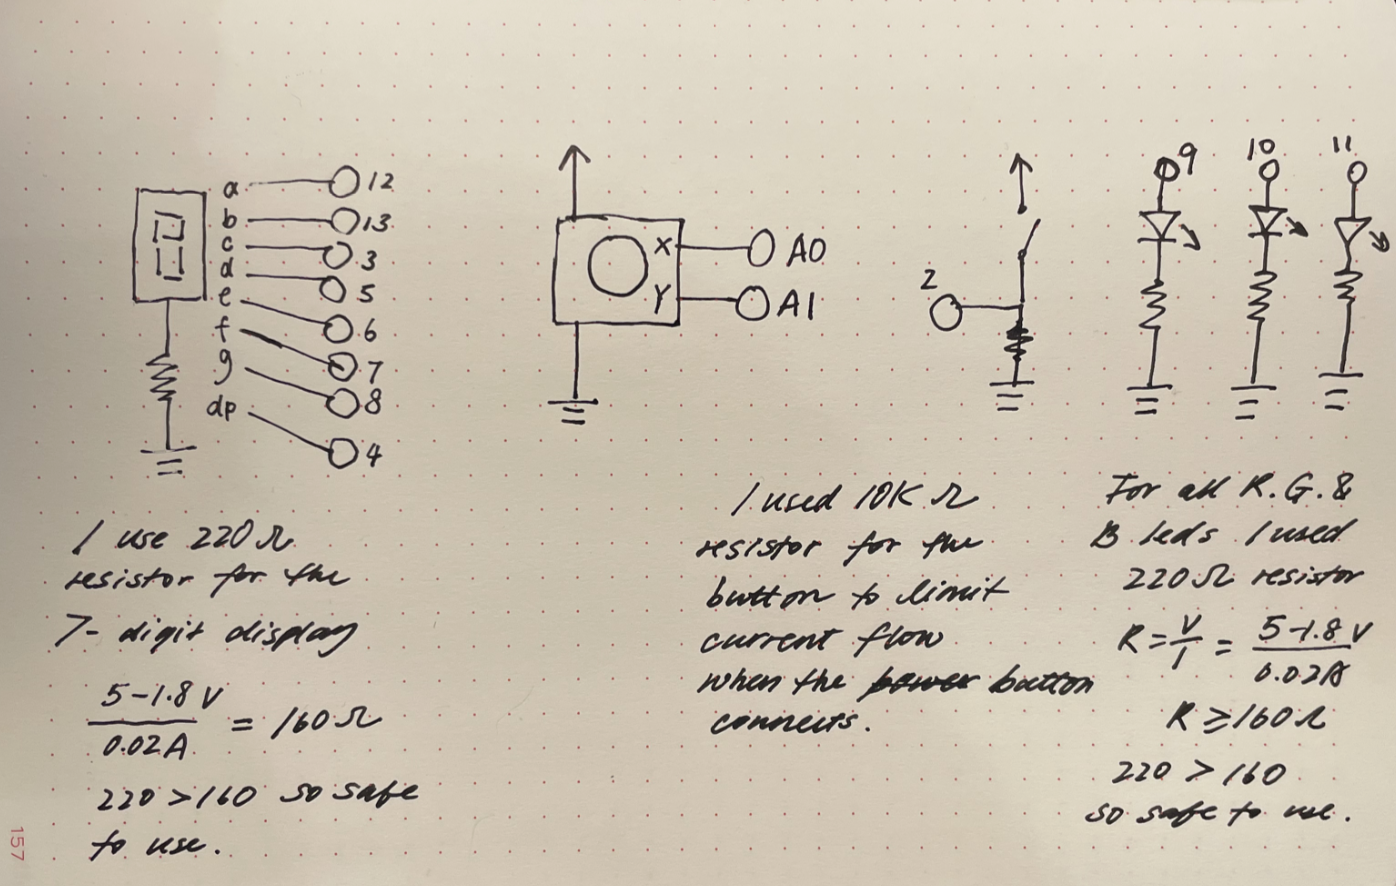 a 12
b 13
c 3
d 5
e 6
f 7
g 8
dp 4
X A0
Y A1
2
9
10
11
I use 220Ω
resistor for the
7-digit display
5-1.8 V
0.02A
= 160Ω
220 > 160 so safe
to use.
I used 10K Ω
resistor for the
button to limit
current flow
when the power button
connects.
For all R.G.&
B leds I used
220Ω resistor
R = V/I = 5-1.8 V
0.02A
R ≥ 160Ω
220 > 160
so safe to use.
157